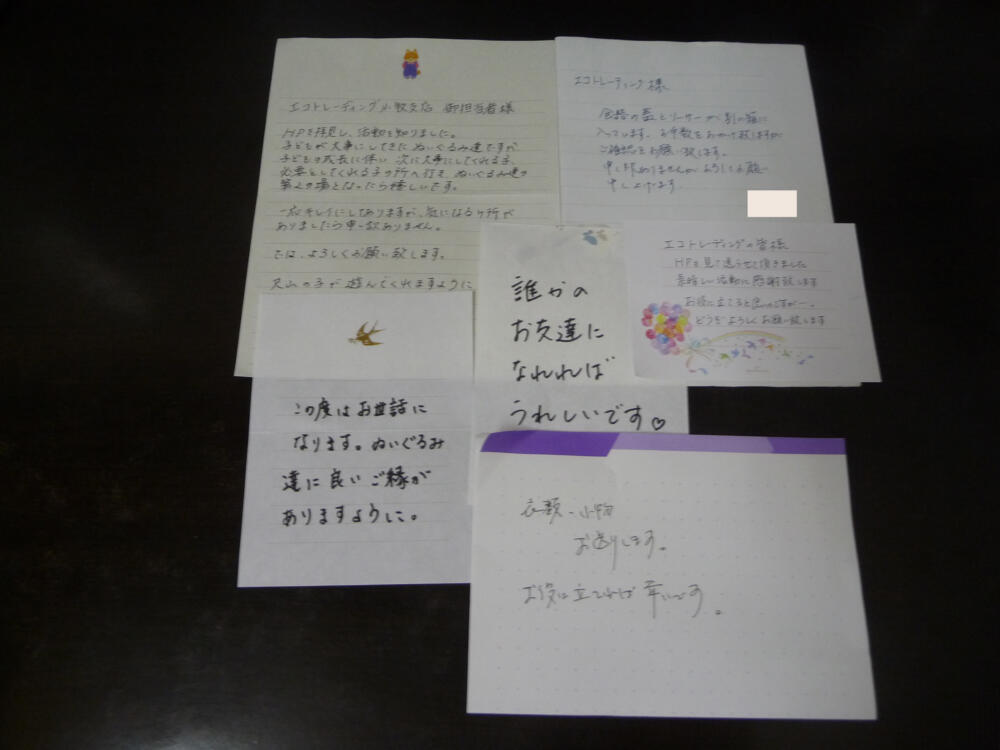 エコトレーディング小牧支店 御担当者様
HPを拝見し、活動を知りました。
子どもが大事にしてきたぬいぐるみ達ですが
子どもの成長に伴い 次に大事にしてくれる子、
必要としてくれる子の所へ行き ぬいぐるみ達の
第2の場となったら嬉しいです。
一応キレイにしてありますが、気になるヶ所が
ありましたら申し訳ありません。
では、よろしくお願い致します。
沢山の子が遊んでくれますように
エコトレーディング様
食器の蓋とソーサーが別の箱に
入っています。お手数をおかけ致しますが
ご確認をお願い致します。
申し訳ありませんがよろしくお願い
申し上げます
エコトレーディングの皆様
HPを見て送らせて頂きました
素晴しい活動に感謝致します
お役に立てると良いのですが…。
どうぞよろしくお願い致します
誰かの
お友達に
なれれば
うれしいです♡
この度はお世話に
なります。ぬいぐるみ
達に良いご縁が
ありますように。
衣類・小物
お送りします。
お役に立てれば幸いです。